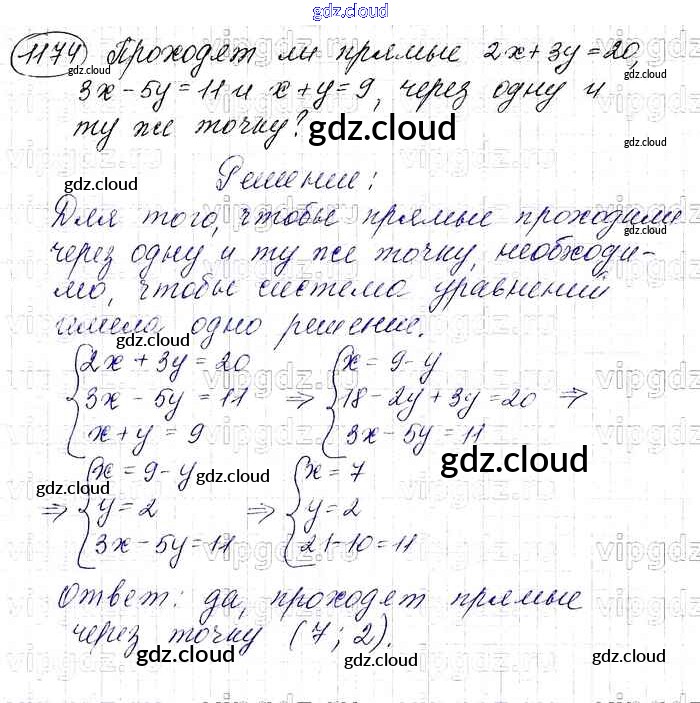 gdz.cloud
1174 Проходят ли прямые 2x+3y=20,
3x-5y=11 и x+y=9, через одну и
ту же точку? gdz.cloud
gdz.cloud
gdz.cloud
Решение:
Для того, чтобы прямые проходили
gdz.cloud
через одну и ту же точку, необходи-
мо, чтобы система уравнений
имела одно решение.
gdz.cloud
{2x+3y=20 {x=9-y
3x-5y=11 => 18-2y+3y=20 =>
x+y=9 3x-5y=11
gdz.cloud
{x=9-y gdz.cloud {x=7
gdz.cloud
=> y=2 => y=2
3x-5y=11 21-10=11
gdz.cloud
Ответ: да, проходят прямые
через точку (7; 2).
gdz.cloud gdz.cloud
vipgdz.ru